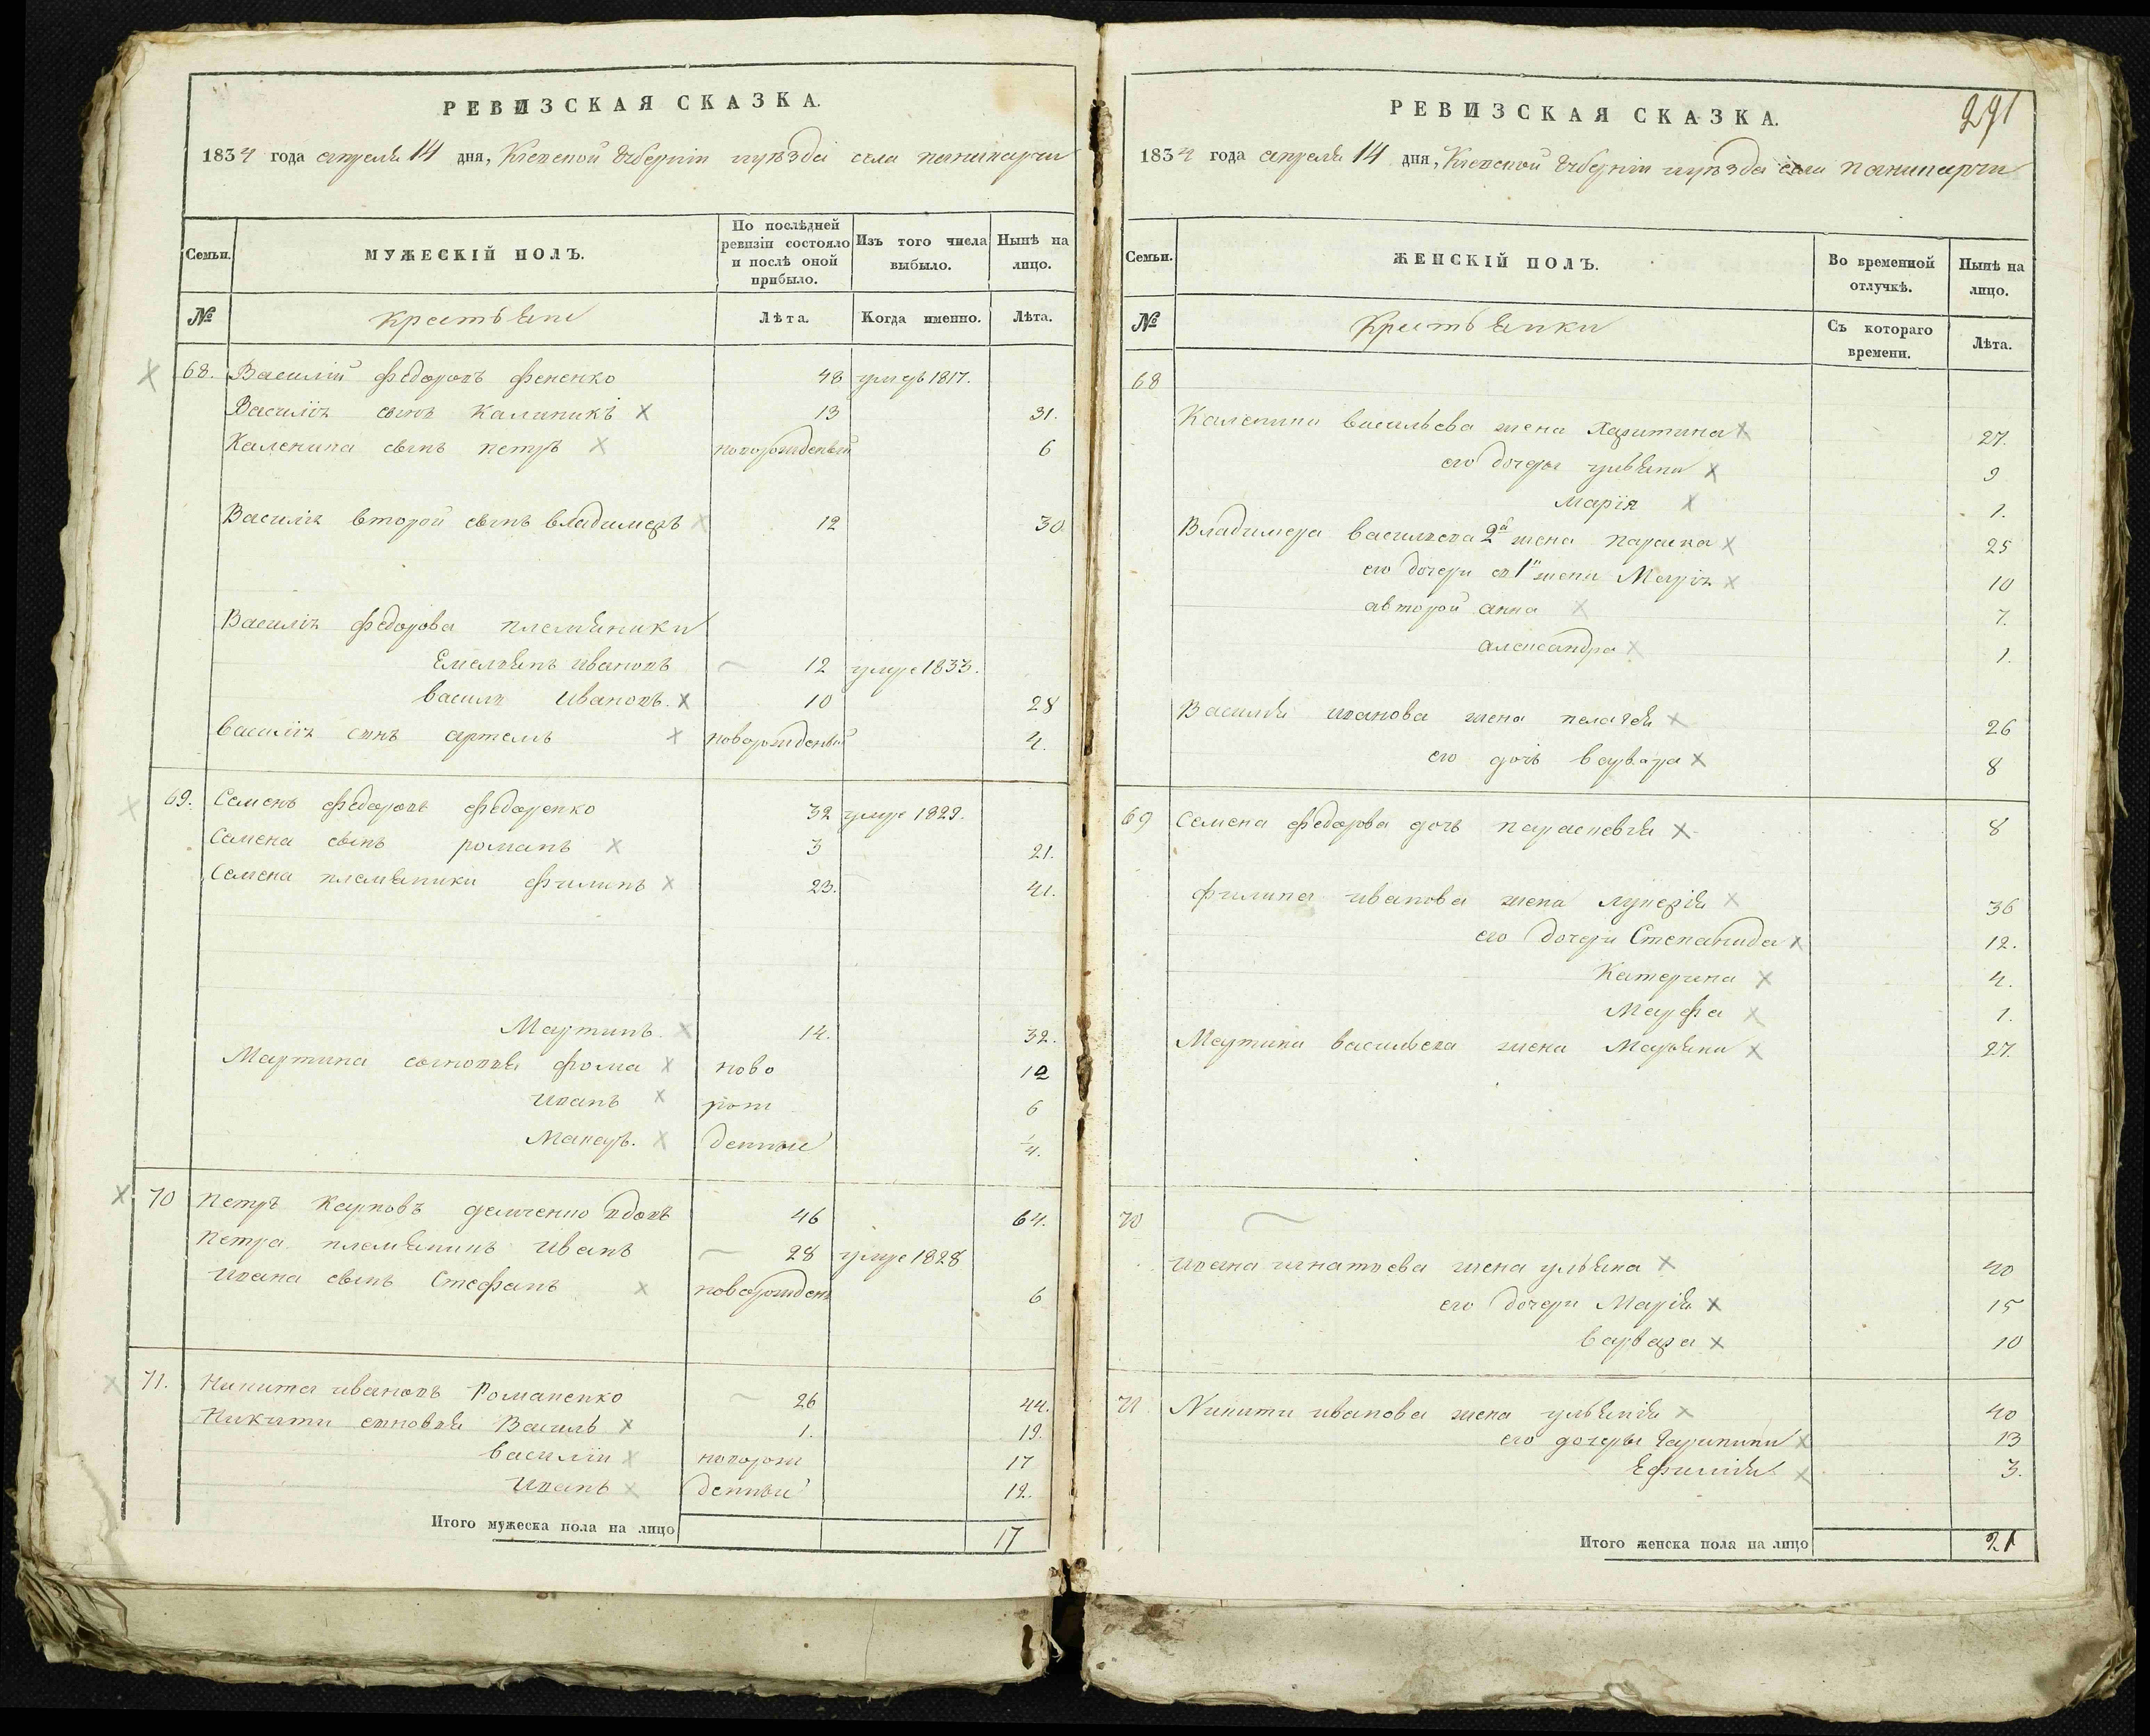 РЕВИЗСКАЯ СКАЗКА.
1834 года апреля 14 дня, Киевской Губерніи иуѣзда села
Семьи.
МУЖЕСКІЙ ПОЛЪ.
По послѣдней ревизіи состояло и послѣ оной прибыло.
Изъ того числа выбыло.
Нынѣ на лицо.
№
крестьяне
Лѣта.
Когда именно.
Лѣта.
68. Василій федоровъ фененко 48 умеръ 1817.
Василія сынъ Калиникъ 13 31.
Каленика сынъ петръ новорожденый 6
Василія второй сынъ владимеръ 12 30
Василія федорова племяники
Емелянъ ивановъ 12 умре 1833.
василь Ивановъ. 10 28
василія синъ артемъ новорожденый 4.
69. Семенъ федоровъ федоренко 32 умре 1829.
Семена сынъ романъ 3 21.
Семена племяники филипъ 23. 41.
Мартинъ. 14. 32.
Мартина синовья фома ново 12
иванъ рож 6
Макаръ. денные 1/4.
70 петръ Карповъ вдовъ 46 64.
петра племянникъ Иванъ 28 умре 1828
ивана сынъ Стефанъ новорожден 6
71. Никита ивановъ Романенко 26 44.
Никити синовья Василь 1. 19.
василій новорож 17
Иванъ денные 12.
Итого мужеска пола на лицо 17
291
РЕВИЗСКАЯ СКАЗКА.
1834 года апреля 14 дня, Киевской Губерніи иуѣзда села
Семьи.
ЖЕНСКІЙ ПОЛЪ.
Во временной отлучкѣ.
Нынѣ на лицо.
№
Крестьянки
Съ котораго времени.
Лѣта.
68
Каленика васильева жена Харитина 27.
его дочеры ульяна 9
Марія 1.
Владимера василева 2я жена параска 25
его дочери от 1й жени Марія 10
авторой анна 7.
александра 1.
Василія иванова жена пелагея 26
его дочь варвара 8
69 Семена федорова дочь параскевія 8
филипа иванова жена лукерія 36
его дочери Степанида 12.
Катерина 4.
Марфа 1.
Мартина васильева жена Марьяна 27.
70
ивана игнатьева жена ульяна 40
его дочери Марія 15
варвара 10
71 Никити иванова жена ульянія 40
его дочеры 13
Ефимія 3.
Итого женска пола на лицо 21